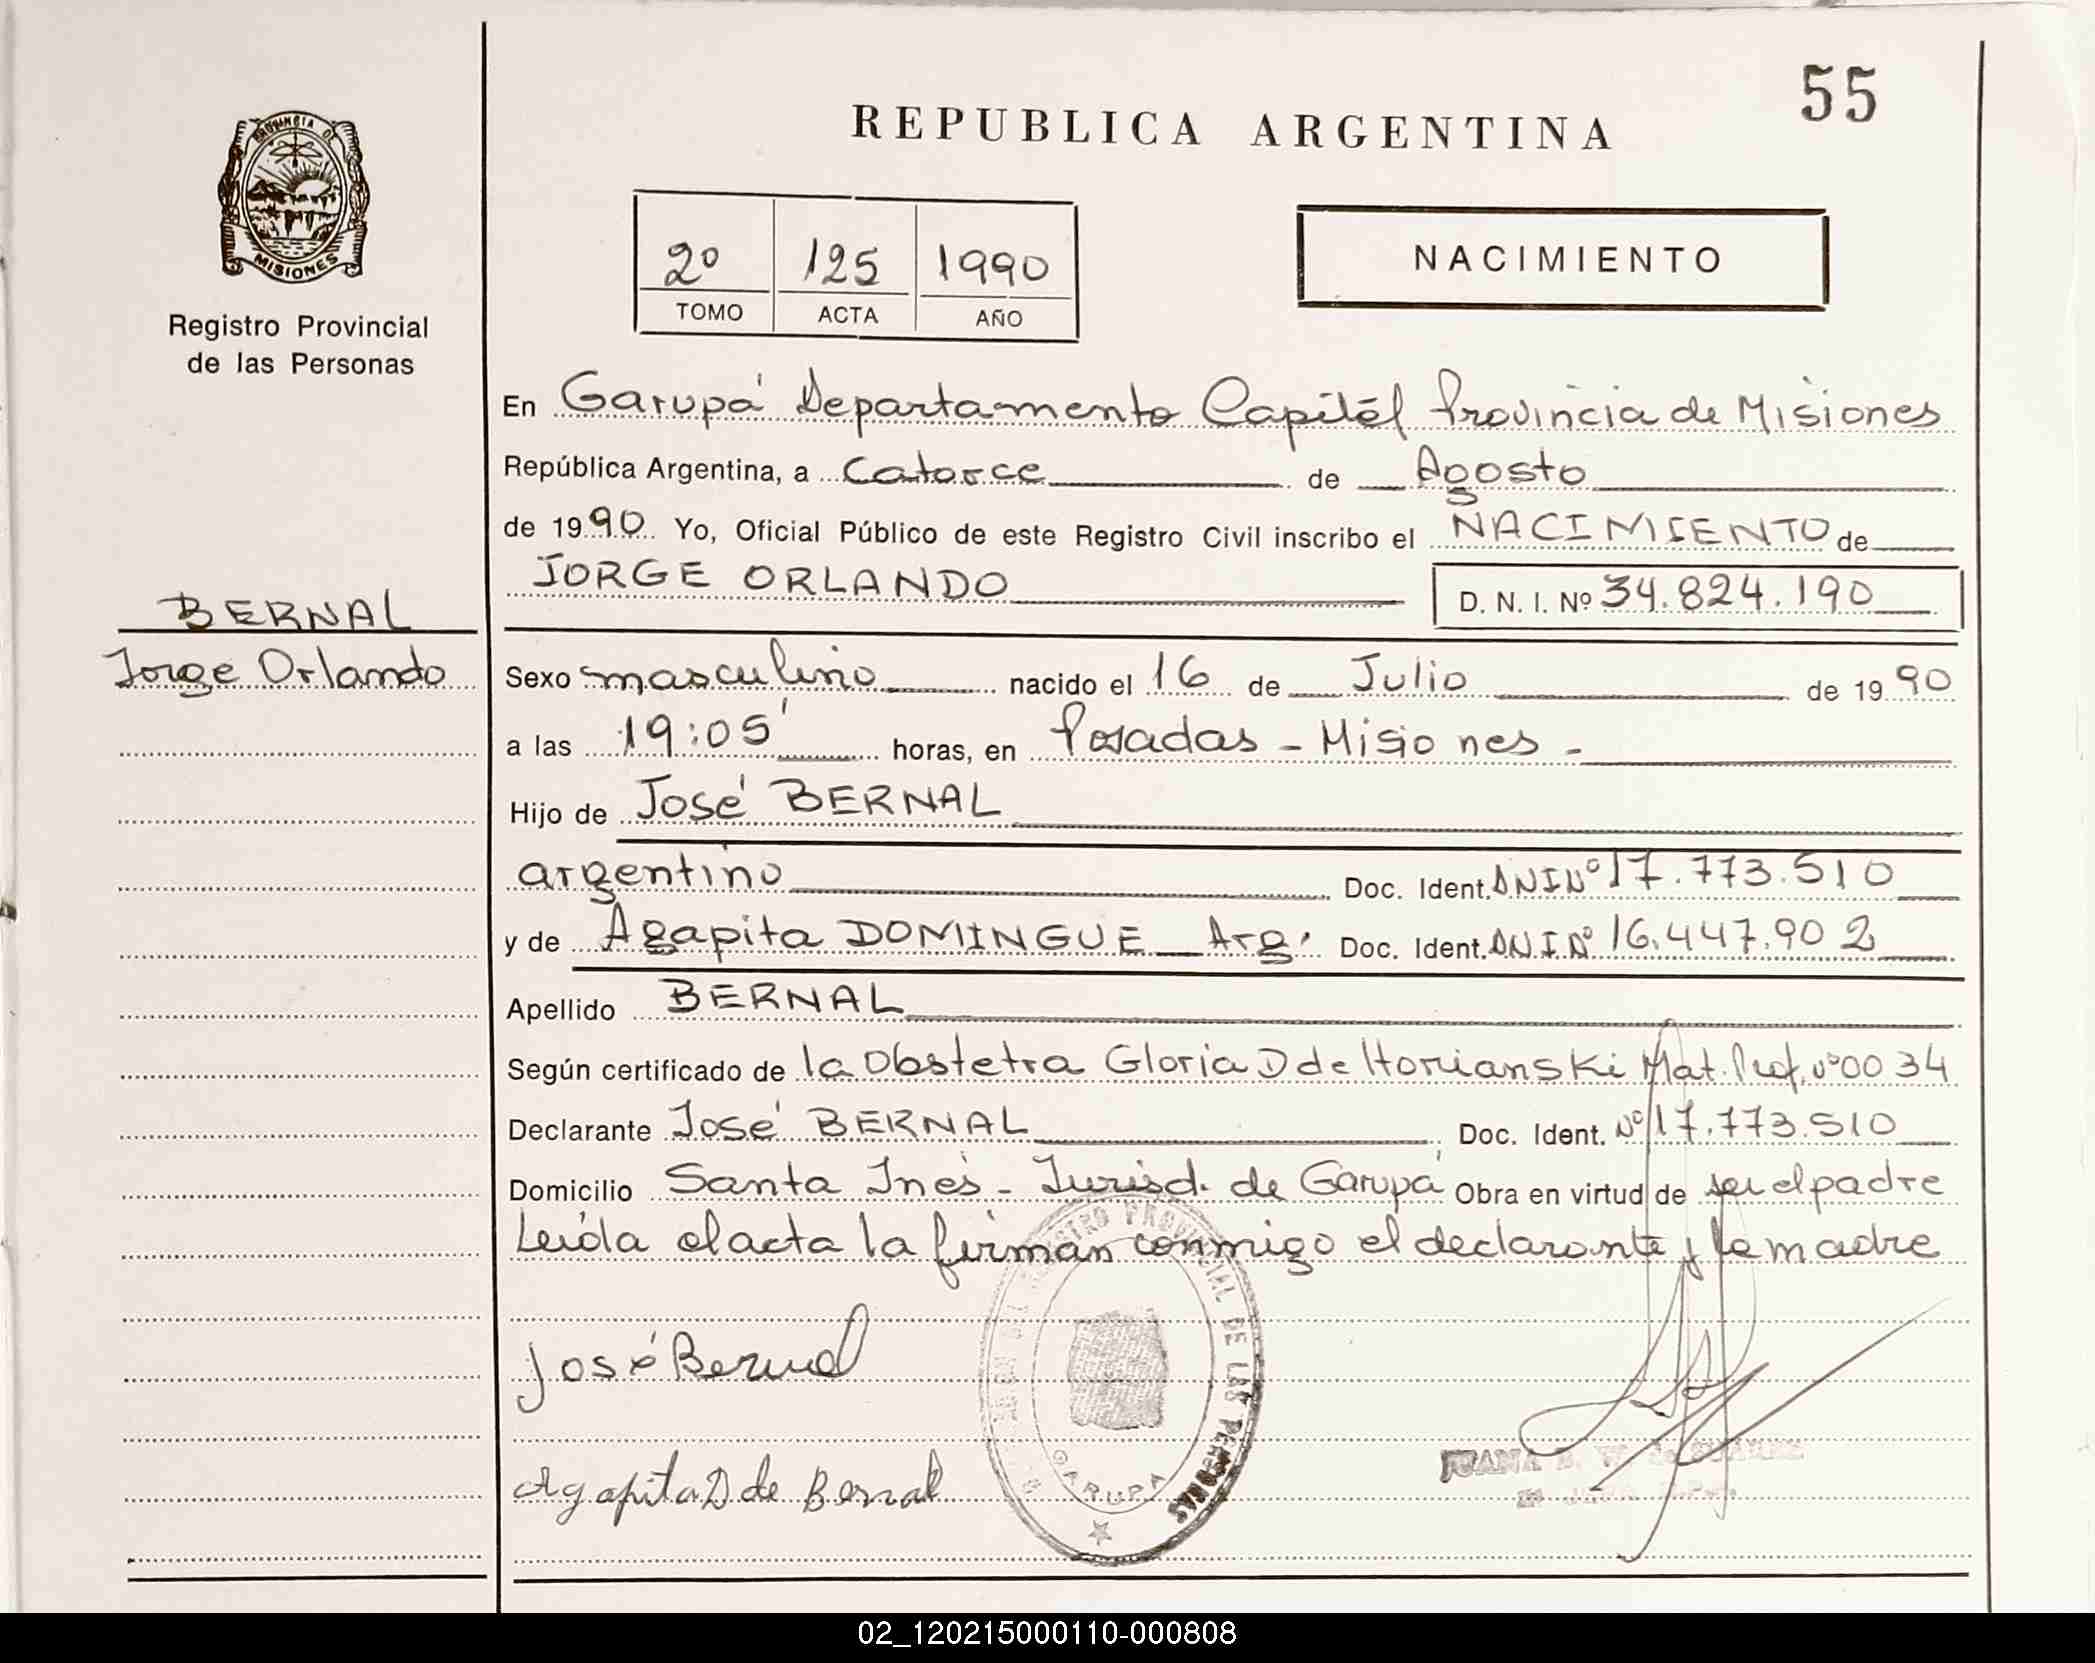 55
REPUBLICA ARGENTINA
PROVINCIA DE
MISIONES
Registro Provincial
de las Personas
2º 125 1990
TOMO ACTA AÑO
NACIMIENTO
En Garupá Departamento Capital Provincia de Misiones
República Argentina, a Catorce de Agosto
de 1990 Yo, Oficial Público de este Registro Civil inscribo el NACIMIENTO de
JORGE ORLANDO D. N. I. Nº 34.824.190
BERNAL
Jorge Orlando
Sexo masculino nacido el 16 de Julio de 1990
a las 19:05' horas, en Posadas - Misiones -
Hijo de José BERNAL
argentino Doc. Ident. DNI Nº 17.773.510
y de Agapita DOMINGUE Arg. Doc. Ident. D.N.I. Nº 16.447.902
Apellido BERNAL
Según certificado de la Obstetra Gloria D de Horianski Mat. Prof. nº 0034
Declarante José BERNAL Doc. Ident. Nº 17.773.510
Domicilio Santa Inés - Jurisd. de Garupá Obra en virtud de ser el padre
Leída el acta la firman conmigo el declarante y la madre
José Bernal
REGISTRO PROVINCIAL DE LAS PERSONAS
GARUPA
Agapita D de Bernal
JUANA
02_120215000110-000808